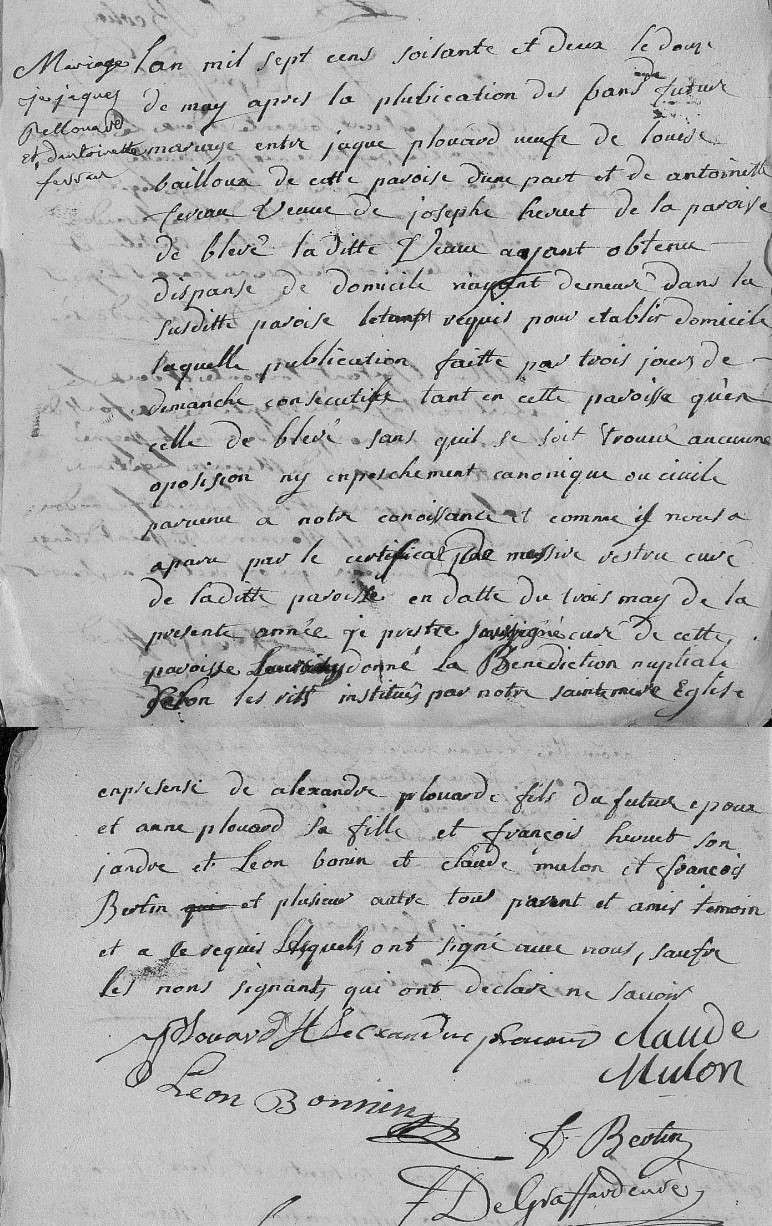 Mariage
jacques
Pellouard
et dantoinette
ferraux
lan mil sept cens soisante et deux le douze
de may apres la plubication des bans du future
mariage entre jaque plouard veufe de louise
bailloux de cette paroise dune part et de antoinette
fereau Veuve de josephe heruet de la paroise
de blevé laditte Veuve ayant obtenu
dispanse de domicile n'ayant demeuré dans la
susditte paroise le tamps requis pour etablir domicile
laquelle publication faitte par trois jours de
dimanche consécutifs tant en cette paroisse qu'en
celle de blevé sans quil se soit trouvé aucunne
oposision ny enpeschement canonique ou civile
parvenu a notre conoissance et comme il nous a
aparu par le certificat de messire vestru curé
de laditte paroisse en datte du trois may de la
presente année je prestre soussigné curé de cette
paroisse leur ay donné la Benediction nuptiale
selon les rits institués par notre sainte mere Eglise
enpresense de alexandre plouarde fils du future epoux
et anne plouard sa fille et françois heruet son
jandre et Leon bonin et claude mulon et françois
Bertin qui et plusieur autre tous parent et amis temoin
et a ce requis Lesquels ont signé avec nous, saufre
les nons signants qui ont declaré ne savoir
plouard Allecxandre plouard claude
Mulon
Leon Bonnin
f. Bertin
DeGraffard curé